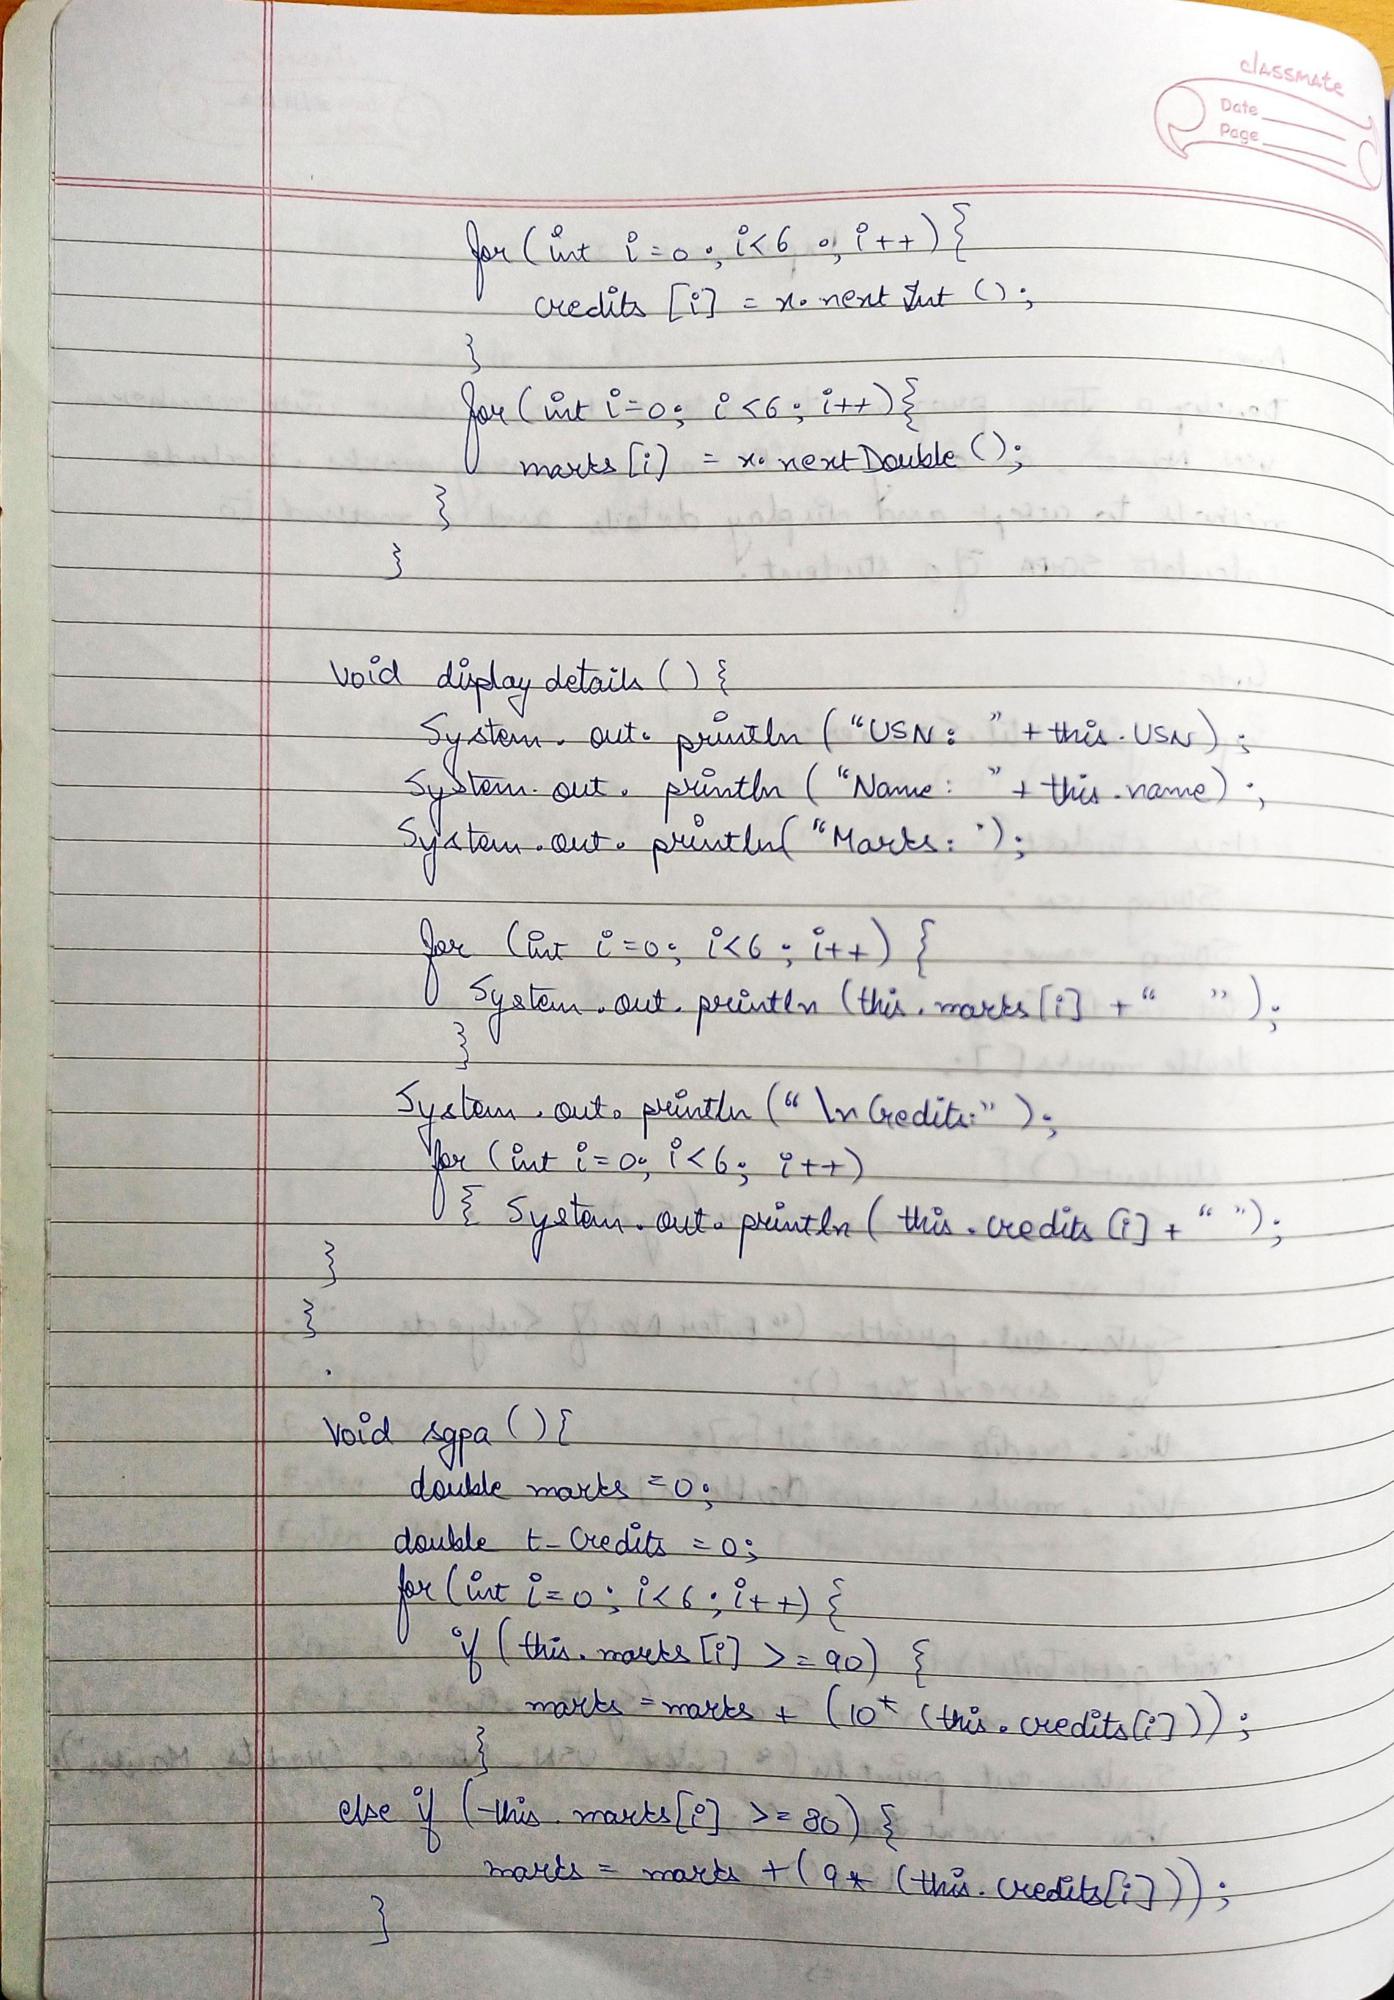 classmate
Date
Page
for (int i=0; i<6; i++) {
credits [i] = x.nextInt ();
}
for (int i=0; i<6; i++) {
marks [i] = x.nextDouble ();
}
}
void display details () {
System.out.println ("USN: " + this.USN);
System.out.println ("Name: " + this.name);
System.out.println ("Marks: ");
for (int i=0; i<6; i++) {
System.out.println (this.marks [i] + " ");
}
System.out.println ("\n Credits:");
for (int i=0; i<6; i++)
{ System.out.println (this.credits [i] + " ");
}
}
void sgpa () {
double marks = 0;
double t_Credits = 0;
for (int i=0; i<6; i++) {
if (this.marks [i] >= 90) {
marks = marks + (10* (this.credits[i]));
}
else if (this.marks[i] >= 80) {
marks = marks + (9* (this.credits[i]));
}